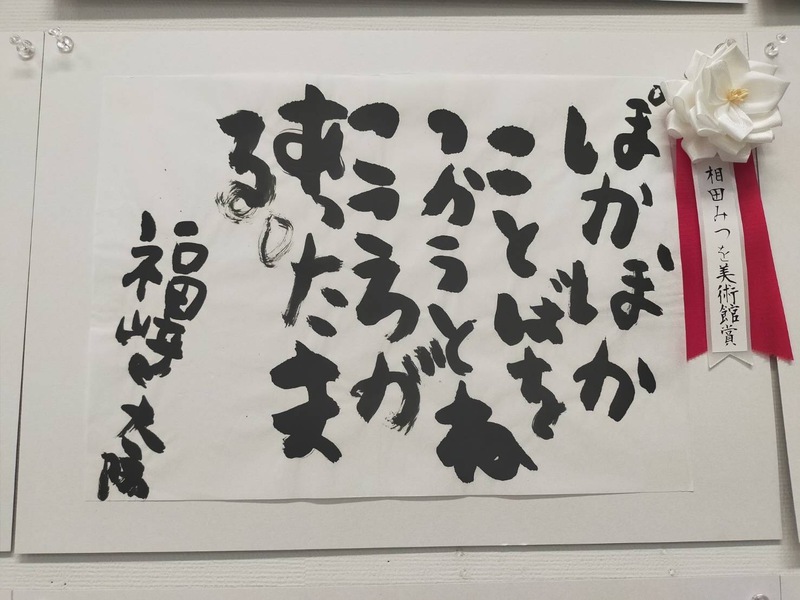 相田みつを美術館賞
ぽかぽか
ことばを
つかうとね
こころが
あったま
る。
福崎 大